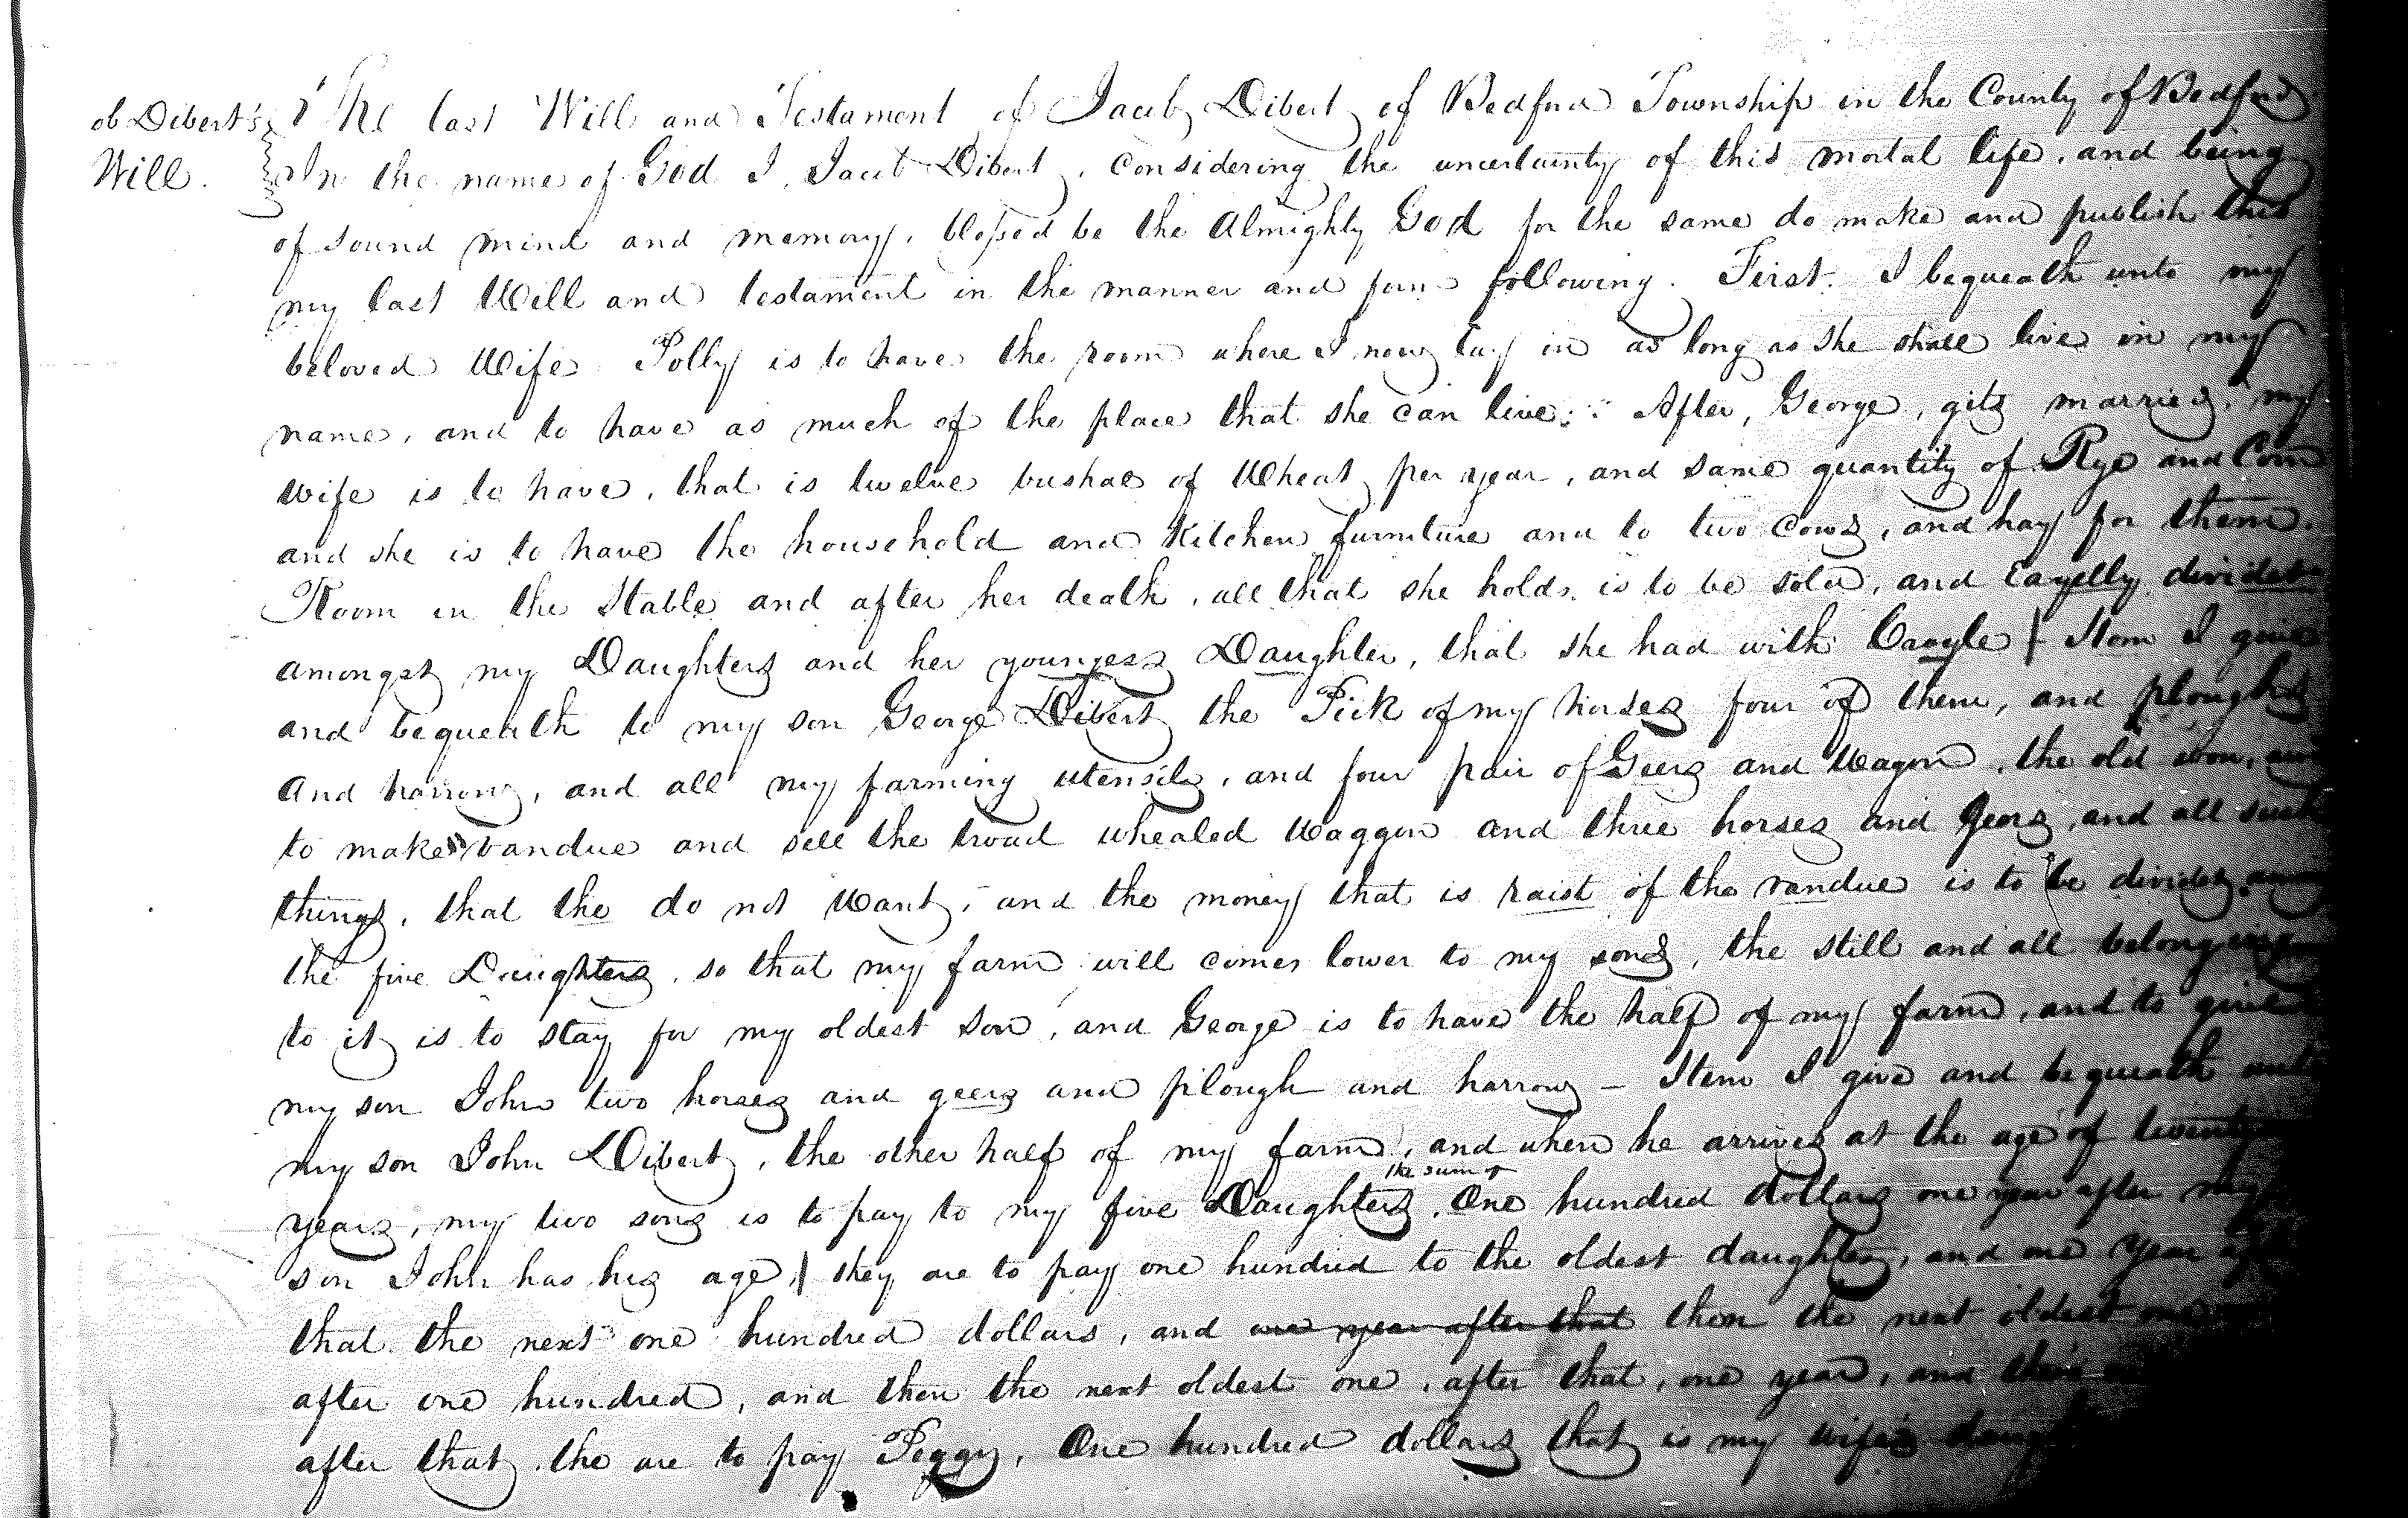 ob Dibert's
Will.
The last Will and Testament of Jacob Dibert of Bedford Township in the County of Bedford.
In the name of God I, Jacob Dibert, considering the uncertainty of this mortal life, and being
of sound mind and memory, blessed be the Almighty God for the same do make and publish this
my last Will and testament in the manner and form following. First. I bequeath unto my
beloved Wife Polly is to have the room where I now lay in as long as she shall live in my
name, and to have as much of the place that she can live: After, George, gits married, my
wife is to have, that is twelve bushae of Wheat per year, and same quantity of Rye and Corn
and she is to have the household and Kitchen furniture and to two Cows, and hay for them.
Room in the Stable and after her death, all that she holds is to be sold, and Eaqelly dividet
amongst my Daughters and her youngess Daughter, that she had with Caogle Item I give
and bequeath to my son George Dibert the Pick of my horses four of them, and ploughs
And harrows, and all my farming utensils, and four pair of Geers and Wagon, the old won, and
to make vandue and sell the broad whealed Waggon and three horses and Geors, and all such
things, that the do not Want, and the money that is raist of the vandue is to be dividet among
the five Daughters, so that my farm will comes lower to my sons, the still and all belonging
to it is to stay for my oldest son, and George is to have the half of my farm, and to give
my son John two horses and geers and plough and harrow – Item I give and bequeath unto
my son John Dibert, the other half of my farm, and when he arrives at the age of twenty
years, my two sons is to pay to my five Daughters, the sum of One hundred dollars one year after my
son John has his age, they are to pay one hundred to the oldest daughter, and one Year
that the next one hundred dollars, and one year after that then the next oldest one
after one hundred, and then the next oldest one, after that, one year, and
after that, the are to pay Peggy, One hundred dollars that is my wife's